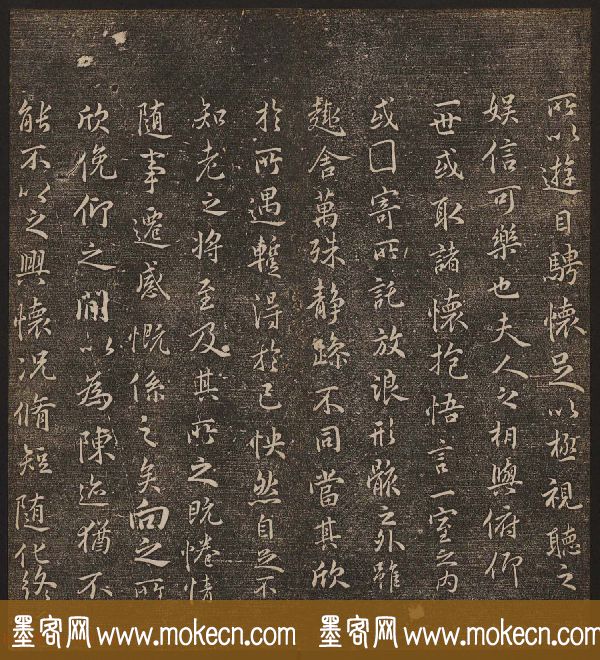 所以遊目騁懷足以極視聽之
娱信可樂也夫人之相與俯仰
一世或取諸懷抱悟言一室之内
或寄所託放浪形骸之外雖
趣舍萬殊静躁不同當其欣
於所遇蹔得於己怏然自足不
知老之将至及其所之既惓情
随事遷感慨係之矣向之所
欣俛仰之閒以為陳迹猶不
能不以之興懷况脩短随化終
墨客网 www.mokecn.com 墨客网 www.mokecn.com